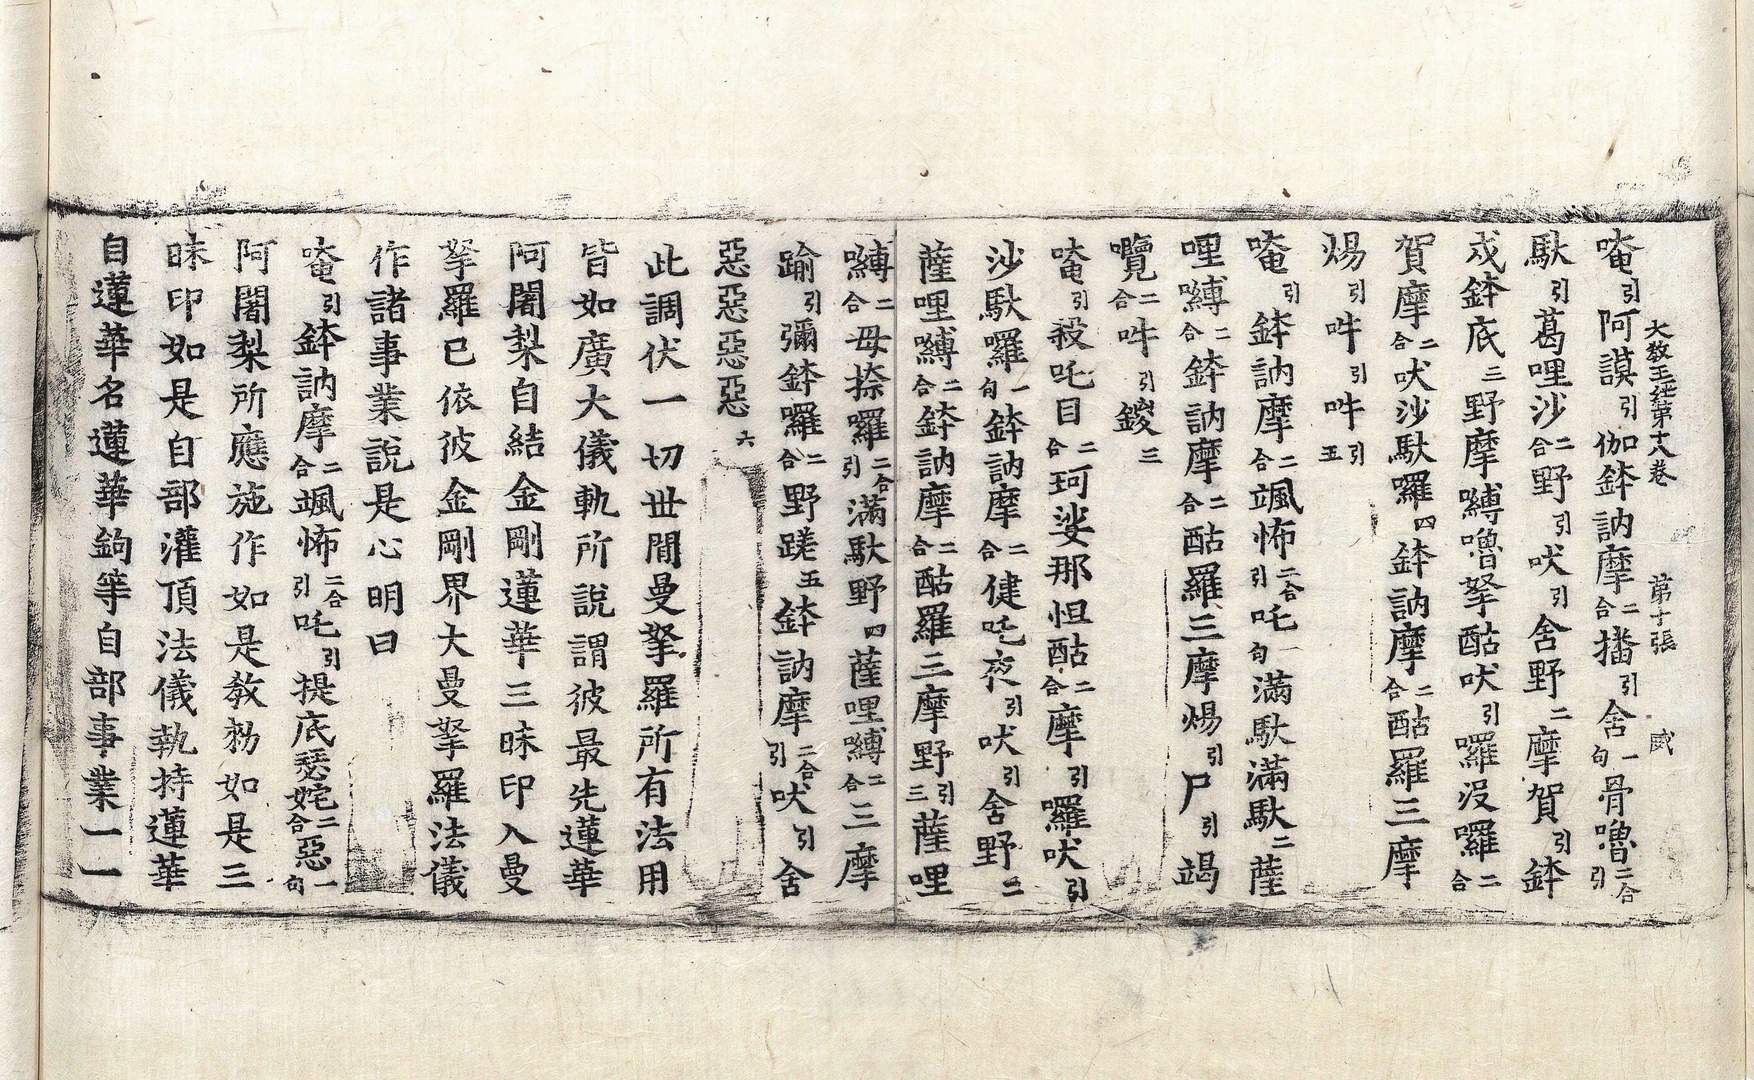 大教王經第十八卷　第十張　威
唵引阿謨引伽鉢訥摩二合播引舍一句骨嚕二合引
馱引葛哩沙二合野引吠引舍野二摩賀引鉢
戍鉢底三野摩嚩嚕拏酤吠引囉沒囉二合
賀摩二合吠沙馱囉四鉢訥摩二合酤羅三摩
焬引吽引吽引五
唵引鉢訥摩二合颯怖二合引吒一句滿馱滿馱二薩
哩嚩二合鉢訥摩二合酤羅三摩焬引尸引竭
囕二合吽引鑁三
唵引殺吒目二合珂娑那怛酤二合摩引囉吠引
沙馱囉一句鉢訥摩二合健吒夜引吠引舍野二
薩哩嚩二合鉢訥摩二合酤羅三摩野引三薩哩
嚩二合母捺囉二合引滿馱野四薩哩嚩二合三摩
踰引彌鉢囉二合野蹉五鉢訥摩二合引吠引舍
惡惡惡惡六
此調伏一切世間曼拏羅所有法用
皆如廣大儀軌所說謂彼最先蓮華
阿闍梨自結金剛蓮華三昧印入曼
拏羅已依彼金剛界大曼拏羅法儀
作諸事業說是心明曰
唵引鉢訥摩二合颯怖二合引吒引提底瑟姹二合惡一句
阿闍梨所應施作如是教勑如是三
昧印如是自部灌頂法儀執持蓮華
自蓮華名蓮華鉤等自部事業一一